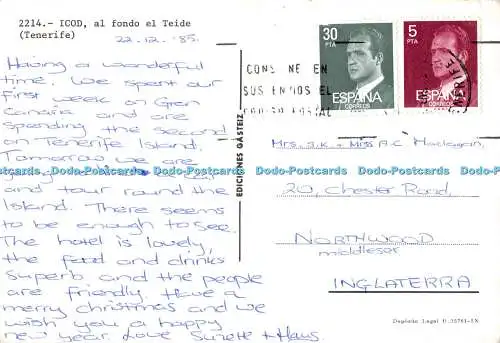 2214.- ICOD, al fondo el Teide
(Tenerife)
22.12.'85.
Having a wonderful
time. We spent our
first week on Gran
Canaria and are
spending the second
on Tenerife Island.
Tomorrow we are
and tour round the
Island. There seems
to be enough to see.
The hotel is lovely,
the food and drinks
superb and the people
are friendly. Have a
merry Christmas and we
wish you a happy
new year. Love Suzette + Hans.
EDICIONES GASTEIZ
30
PTA
ESPAÑA
CORREOS
5
PTA
ESPAÑA
CORREOS
CONS NE EN
SUS ENVIOS EL
Mrs. S.K. + Miss A.C.
20, Chester Road,
NORTHWOOD
middlesex
INGLATERRA
Depósito Legal B. 35761-IX
Dodo-Postcards Dodo-Postcards Dodo-Postcards Dodo-Postcards Dodo-Postcards